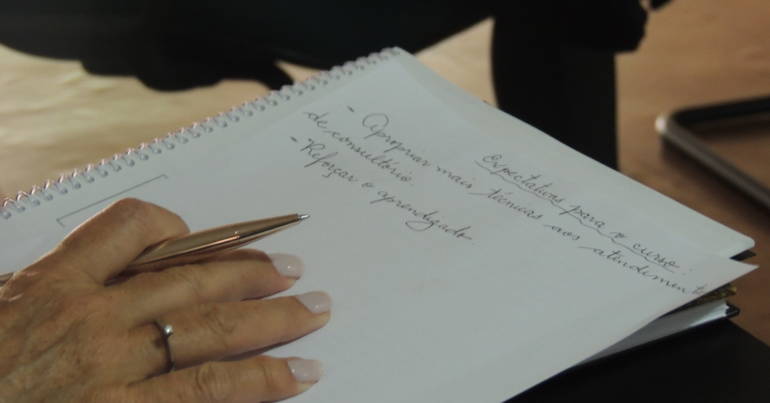 Expectativas para o curso:
- Apropriar mais técnicas aos atendimento
de consultório.
- Reforçar o aprendizado